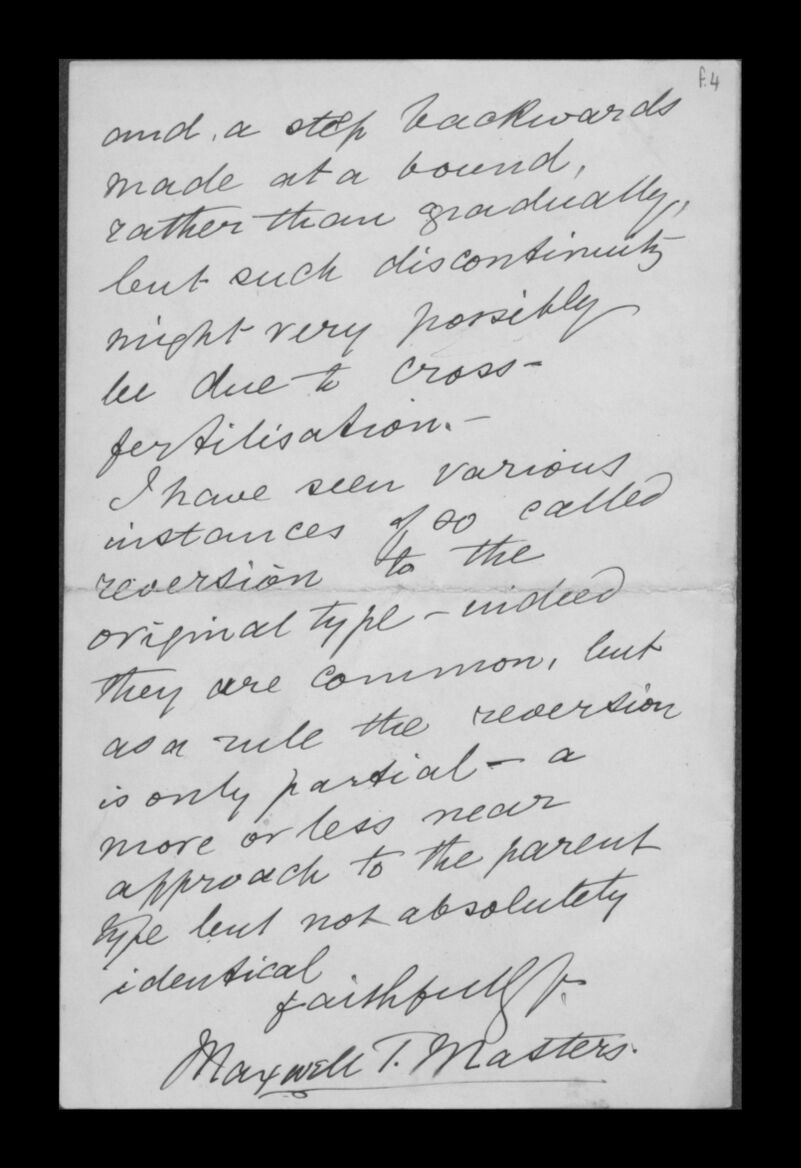 f.4
and a step backwards
made at a bound,
rather than gradually,
but such discontinuity
might very possibly
be due to cross-
fertilisation.-
I have seen various
instances of so called
reversion to the
original type - indeed
they are common, but
as a rule the reversion
is only partial - a
more or less near
approach to the parent
type but not absolutely
identical
faithfully
Maxwell T. Masters.